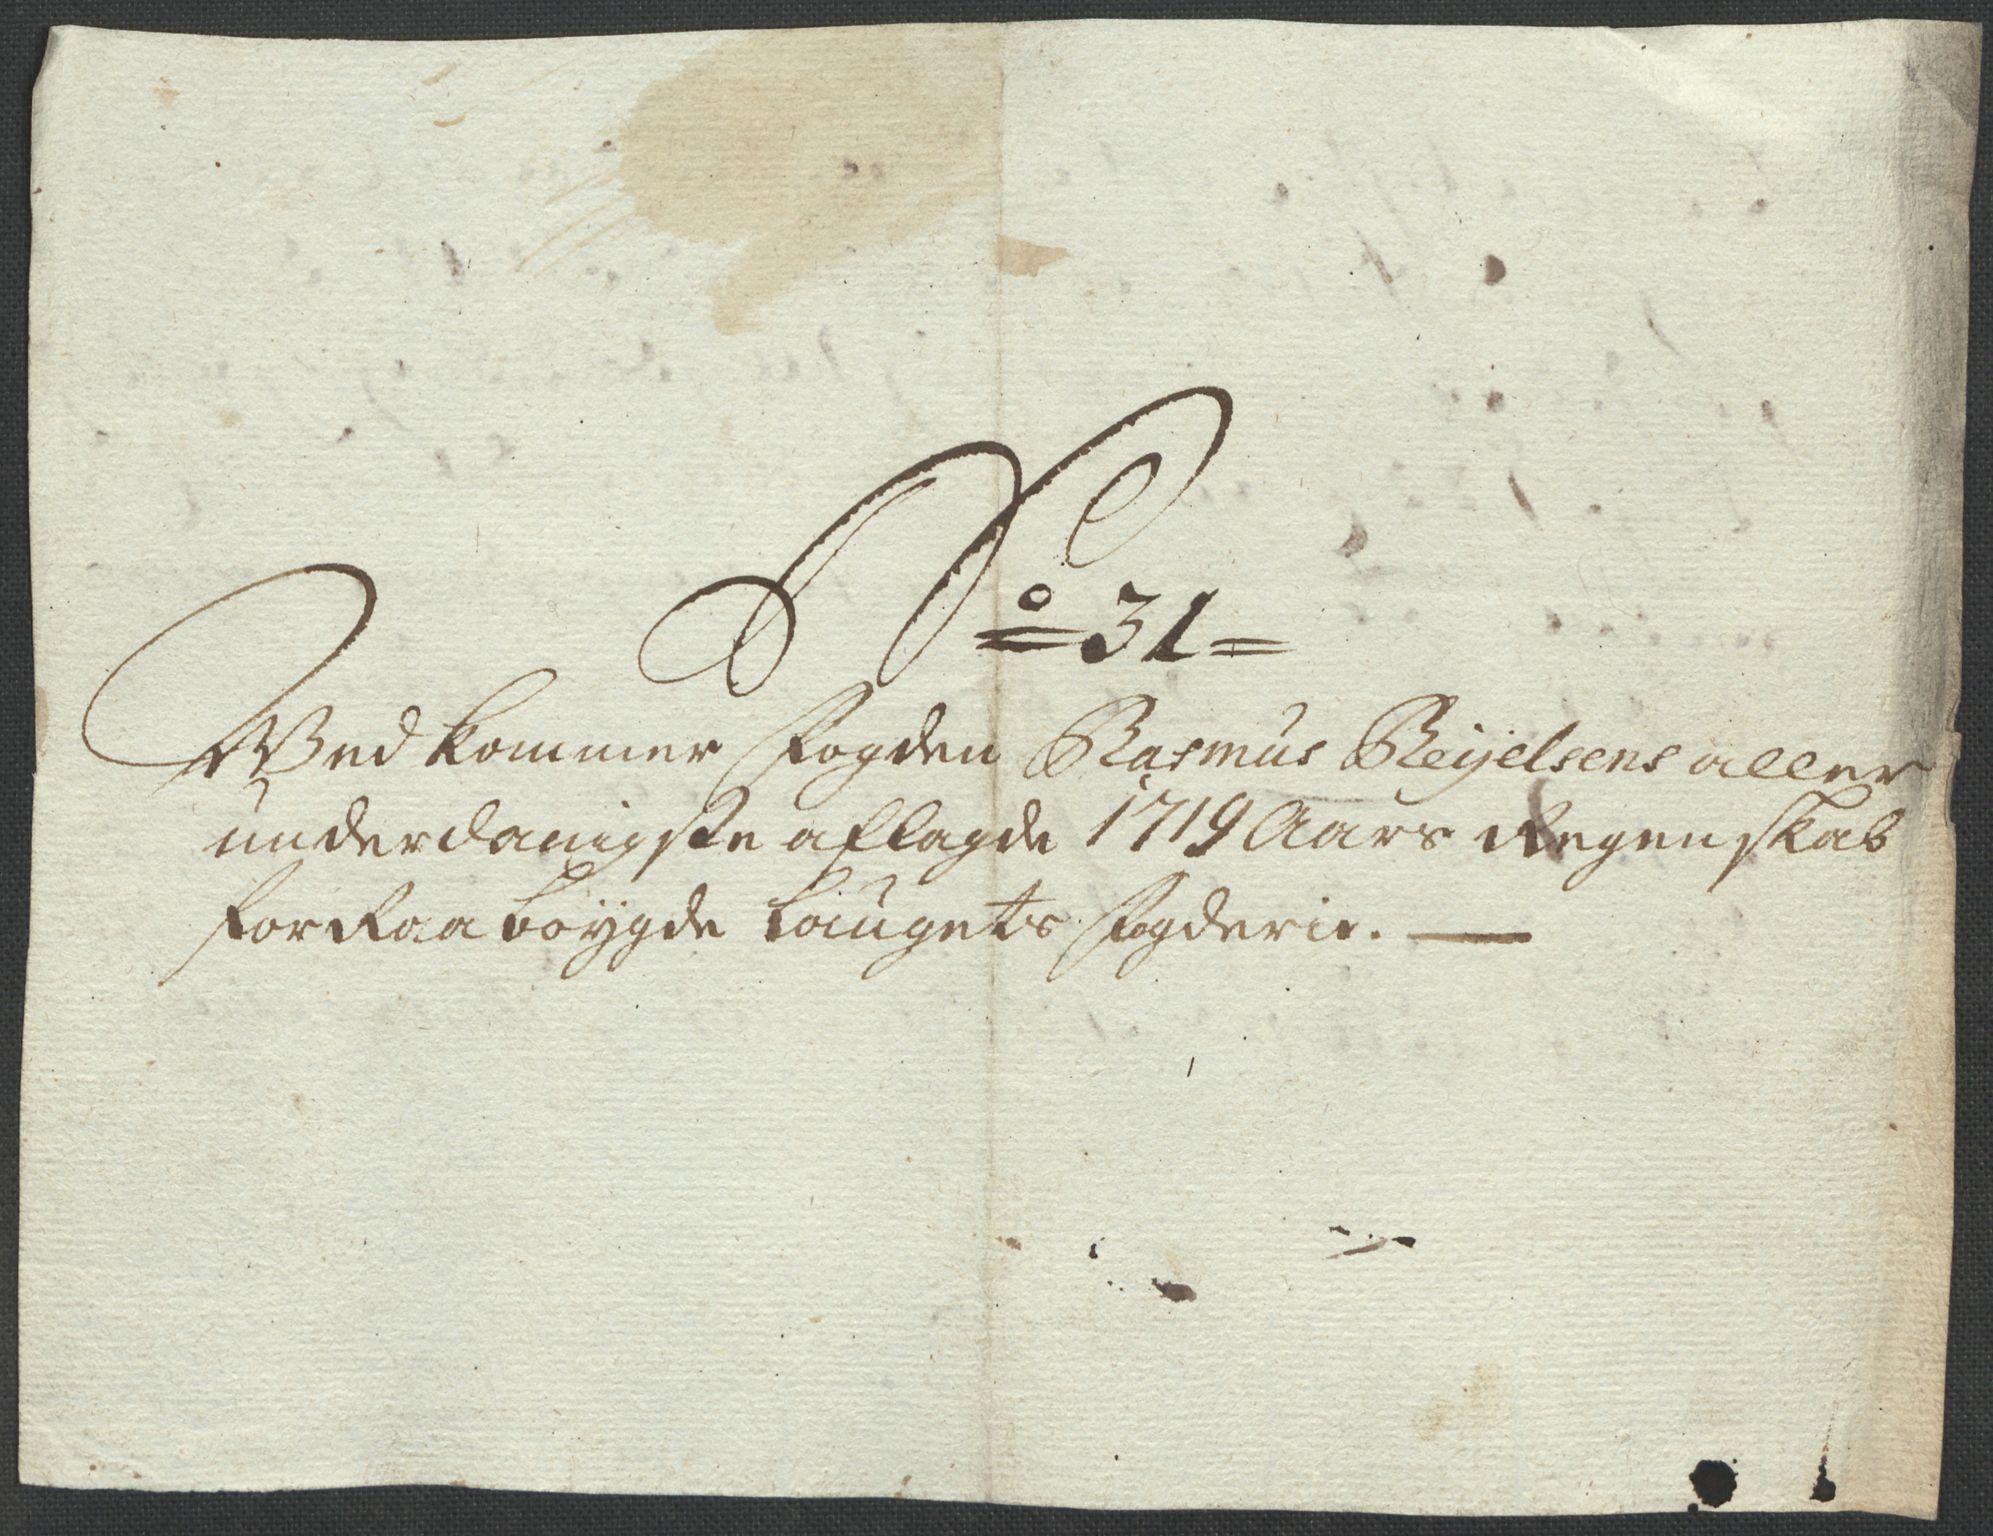 No 31
Ved kommer Fogden Rasmus Reijelsens aller
underdanigste aflagde 1719 Aars Regenskab
for Raabøygde laugets Fogderie.